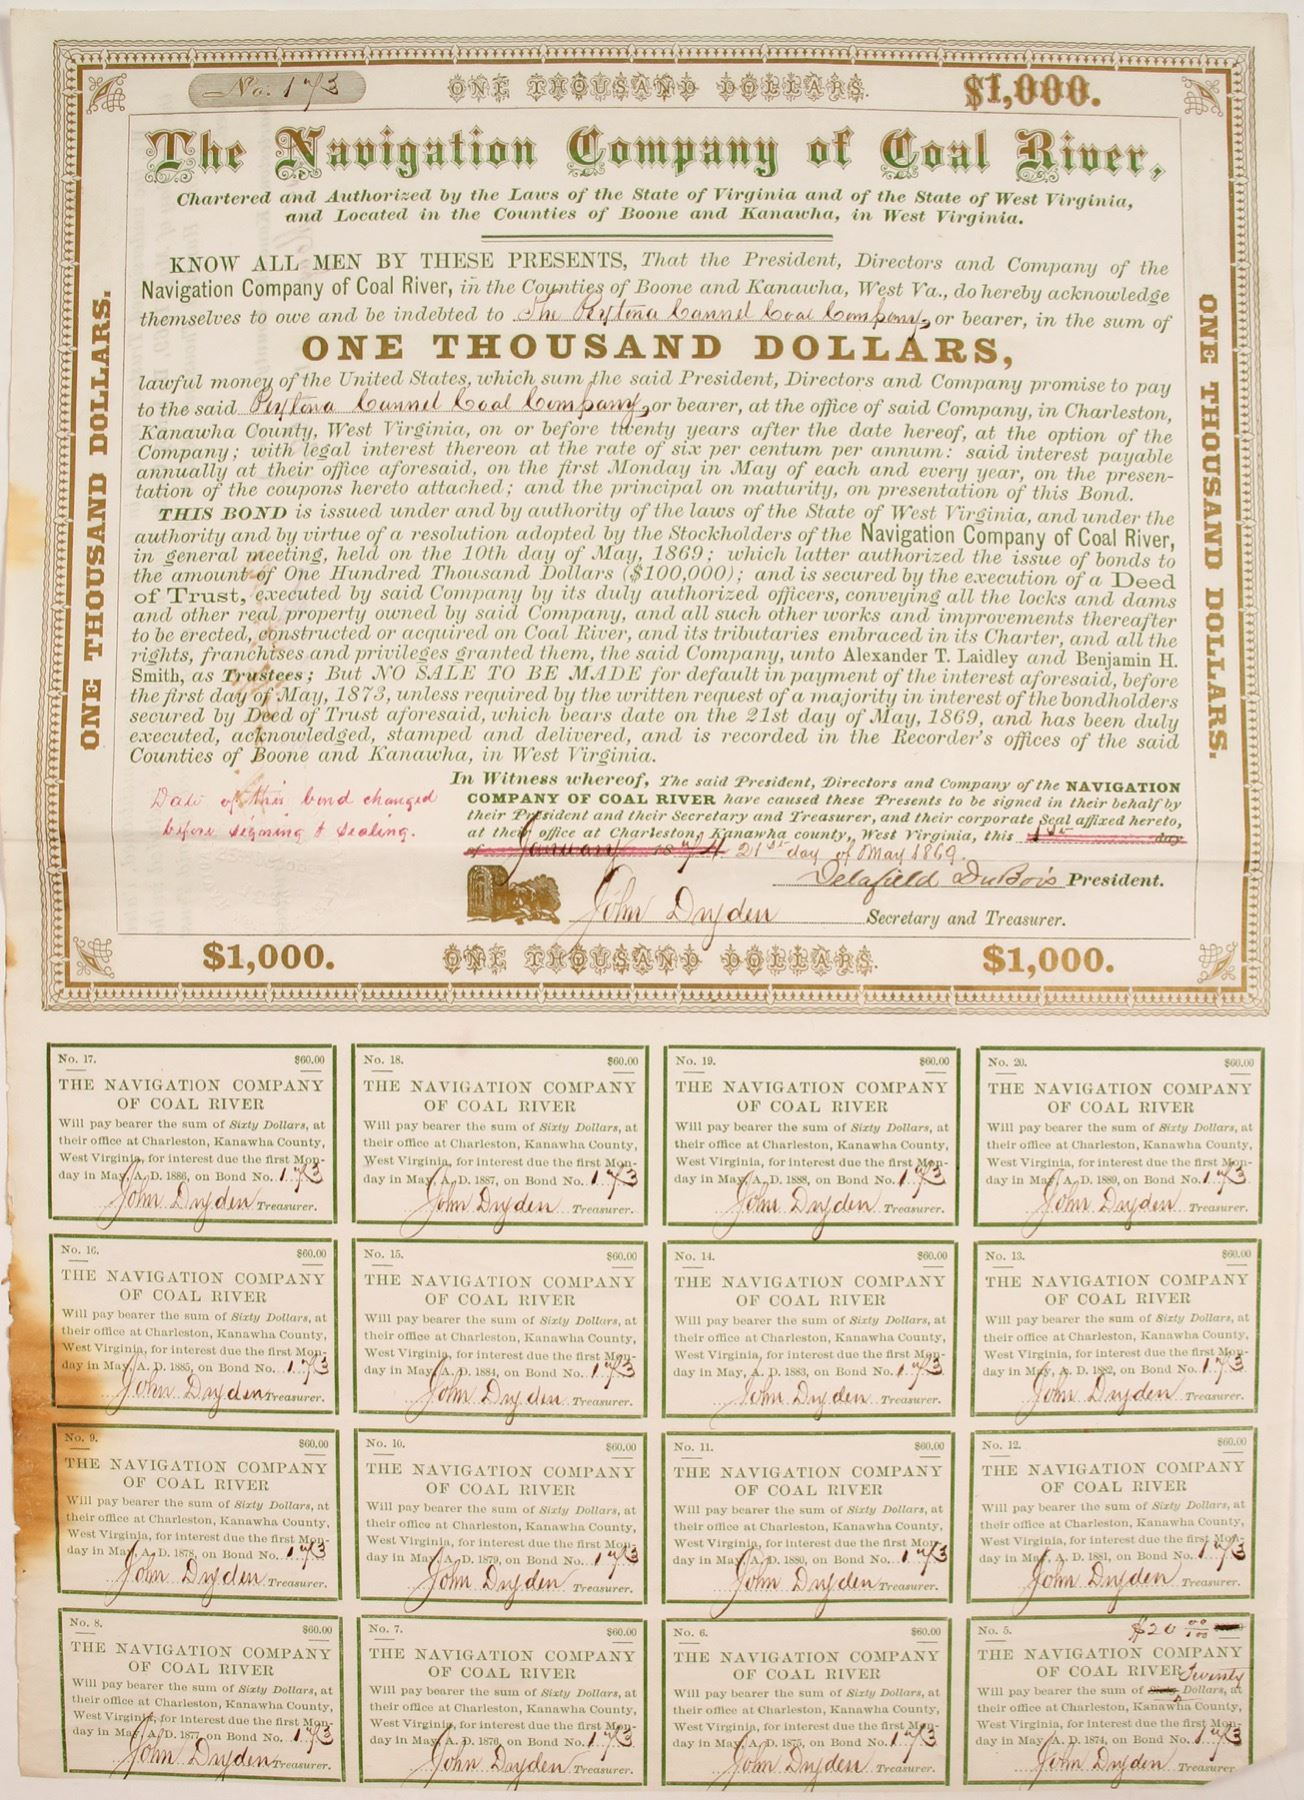 No. 173
ONE THOUSAND DOLLARS.
$1,000.
The Navigation Company of Coal River,
Chartered and Authorized by the Laws of the State of Virginia and of the State of West Virginia,
and Located in the Counties of Boone and Kanawha, in West Virginia.
KNOW ALL MEN BY THESE PRESENTS, That the President, Directors and Company of the
Navigation Company of Coal River, in the Counties of Boone and Kanawha, West Va., do hereby acknowledge
themselves to owe and be indebted to The Peytona Cannel Coal Company, or bearer, in the sum of
ONE THOUSAND DOLLARS,
lawful money of the United States, which sum the said President, Directors and Company promise to pay
to the said Peytona Cannel Coal Company, or bearer, at the office of said Company, in Charleston,
Kanawha County, West Virginia, on or before twenty years after the date hereof, at the option of the
Company; with legal interest thereon at the rate of six per centum per annum: said interest payable
annually at their office aforesaid, on the first Monday in May of each and every year, on the presen-
tation of the coupons hereto attached; and the principal on maturity, on presentation of this Bond.
THIS BOND is issued under and by authority of the laws of the State of West Virginia, and under the
authority and by virtue of a resolution adopted by the Stockholders of the Navigation Company of Coal River,
in general meeting, held on the 10th day of May, 1869; which latter authorized the issue of bonds to
the amount of One Hundred Thousand Dollars ($100,000); and is secured by the execution of a Deed
of Trust, executed by said Company by its duly authorized officers, conveying all the locks and dams
and other real property owned by said Company, and all such other works and improvements thereafter
to be erected, constructed or acquired on Coal River, and its tributaries embraced in its Charter, and all the
rights, franchises and privileges granted them, the said Company, unto Alexander T. Laidley and Benjamin H.
Smith, as Trustees; But NO SALE TO BE MADE for default in payment of the interest aforesaid, before
the first day of May, 1873, unless required by the written request of a majority in interest of the bondholders
secured by Deed of Trust aforesaid, which bears date on the 21st day of May, 1869, and has been duly
executed, acknowledged, stamped and delivered, and is recorded in the Recorder's offices of the said
Counties of Boone and Kanawha, in West Virginia.
In Witness whereof, The said President, Directors and Company of the NAVIGATION
COMPANY OF COAL RIVER have caused these Presents to be signed in their behalf by
their President and their Secretary and Treasurer, and their corporate Seal affixed hereto,
at their office at Charleston, Kanawha county, West Virginia, this 1st day
of January 1874 21st day of May 1869.
Date of this bond changed
before signing & sealing.
Delafield DuBois President.
John Dryden Secretary and Treasurer.
$1,000.
ONE THOUSAND DOLLARS.
$1,000.
ONE THOUSAND DOLLARS.
ONE THOUSAND DOLLARS.
No. 17. $60.00
THE NAVIGATION COMPANY
OF COAL RIVER
Will pay bearer the sum of Sixty Dollars, at
their office at Charleston, Kanawha County,
West Virginia, for interest due the first Mon-
day in May, A. D. 1886, on Bond No. 173
John Dryden Treasurer.
No. 18. $60.00
THE NAVIGATION COMPANY
OF COAL RIVER
Will pay bearer the sum of Sixty Dollars, at
their office at Charleston, Kanawha County,
West Virginia, for interest due the first Mon-
day in May, A. D. 1887, on Bond No. 173
John Dryden Treasurer.
No. 19. $60.00
THE NAVIGATION COMPANY
OF COAL RIVER
Will pay bearer the sum of Sixty Dollars, at
their office at Charleston, Kanawha County,
West Virginia, for interest due the first Mon-
day in May, A. D. 1888, on Bond No. 173
John Dryden Treasurer.
No. 20. $60.00
THE NAVIGATION COMPANY
OF COAL RIVER
Will pay bearer the sum of Sixty Dollars, at
their office at Charleston, Kanawha County,
West Virginia, for interest due the first Mon-
day in May, A. D. 1889, on Bond No. 173
John Dryden Treasurer.
No. 16. $60.00
THE NAVIGATION COMPANY
OF COAL RIVER
Will pay bearer the sum of Sixty Dollars, at
their office at Charleston, Kanawha County,
West Virginia, for interest due the first Mon-
day in May, A. D. 1885, on Bond No. 173
John Dryden Treasurer.
No. 15. $60.00
THE NAVIGATION COMPANY
OF COAL RIVER
Will pay bearer the sum of Sixty Dollars, at
their office at Charleston, Kanawha County,
West Virginia, for interest due the first Mon-
day in May, A. D. 1884, on Bond No. 173
John Dryden Treasurer.
No. 14. $60.00
THE NAVIGATION COMPANY
OF COAL RIVER
Will pay bearer the sum of Sixty Dollars, at
their office at Charleston, Kanawha County,
West Virginia, for interest due the first Mon-
day in May, A. D. 1883, on Bond No. 173
John Dryden Treasurer.
No. 13. $60.00
THE NAVIGATION COMPANY
OF COAL RIVER
Will pay bearer the sum of Sixty Dollars, at
their office at Charleston, Kanawha County,
West Virginia, for interest due the first Mon-
day in May, A. D. 1882, on Bond No. 173
John Dryden Treasurer.
No. 9. $60.00
THE NAVIGATION COMPANY
OF COAL RIVER
Will pay bearer the sum of Sixty Dollars, at
their office at Charleston, Kanawha County,
West Virginia, for interest due the first Mon-
day in May, A. D. 1878, on Bond No. 173
John Dryden Treasurer.
No. 10. $60.00
THE NAVIGATION COMPANY
OF COAL RIVER
Will pay bearer the sum of Sixty Dollars, at
their office at Charleston, Kanawha County,
West Virginia, for interest due the first Mon-
day in May, A. D. 1879, on Bond No. 173
John Dryden Treasurer.
No. 11. $60.00
THE NAVIGATION COMPANY
OF COAL RIVER
Will pay bearer the sum of Sixty Dollars, at
their office at Charleston, Kanawha County,
West Virginia, for interest due the first Mon-
day in May, A. D. 1880, on Bond No. 173
John Dryden Treasurer.
No. 12. $60.00
THE NAVIGATION COMPANY
OF COAL RIVER
Will pay bearer the sum of Sixty Dollars, at
their office at Charleston, Kanawha County,
West Virginia, for interest due the first Mon-
day in May, A. D. 1881, on Bond No. 173
John Dryden Treasurer.
No. 8. $60.00
THE NAVIGATION COMPANY
OF COAL RIVER
Will pay bearer the sum of Sixty Dollars, at
their office at Charleston, Kanawha County,
West Virginia, for interest due the first Mon-
day in May, A. D. 1877, on Bond No. 173
John Dryden Treasurer.
No. 7. $60.00
THE NAVIGATION COMPANY
OF COAL RIVER
Will pay bearer the sum of Sixty Dollars, at
their office at Charleston, Kanawha County,
West Virginia, for interest due the first Mon-
day in May, A. D. 1876, on Bond No. 173
John Dryden Treasurer.
No. 6. $60.00
THE NAVIGATION COMPANY
OF COAL RIVER
Will pay bearer the sum of Sixty Dollars, at
their office at Charleston, Kanawha County,
West Virginia, for interest due the first Mon-
day in May, A. D. 1875, on Bond No. 173
John Dryden Treasurer.
No. 5. $20 00/100
THE NAVIGATION COMPANY
OF COAL RIVER Twenty
Will pay bearer the sum of Sixty Dollars, at
their office at Charleston, Kanawha County,
West Virginia, for interest due the first Mon-
day in May, A. D. 1874, on Bond No. 173
John Dryden Treasurer.